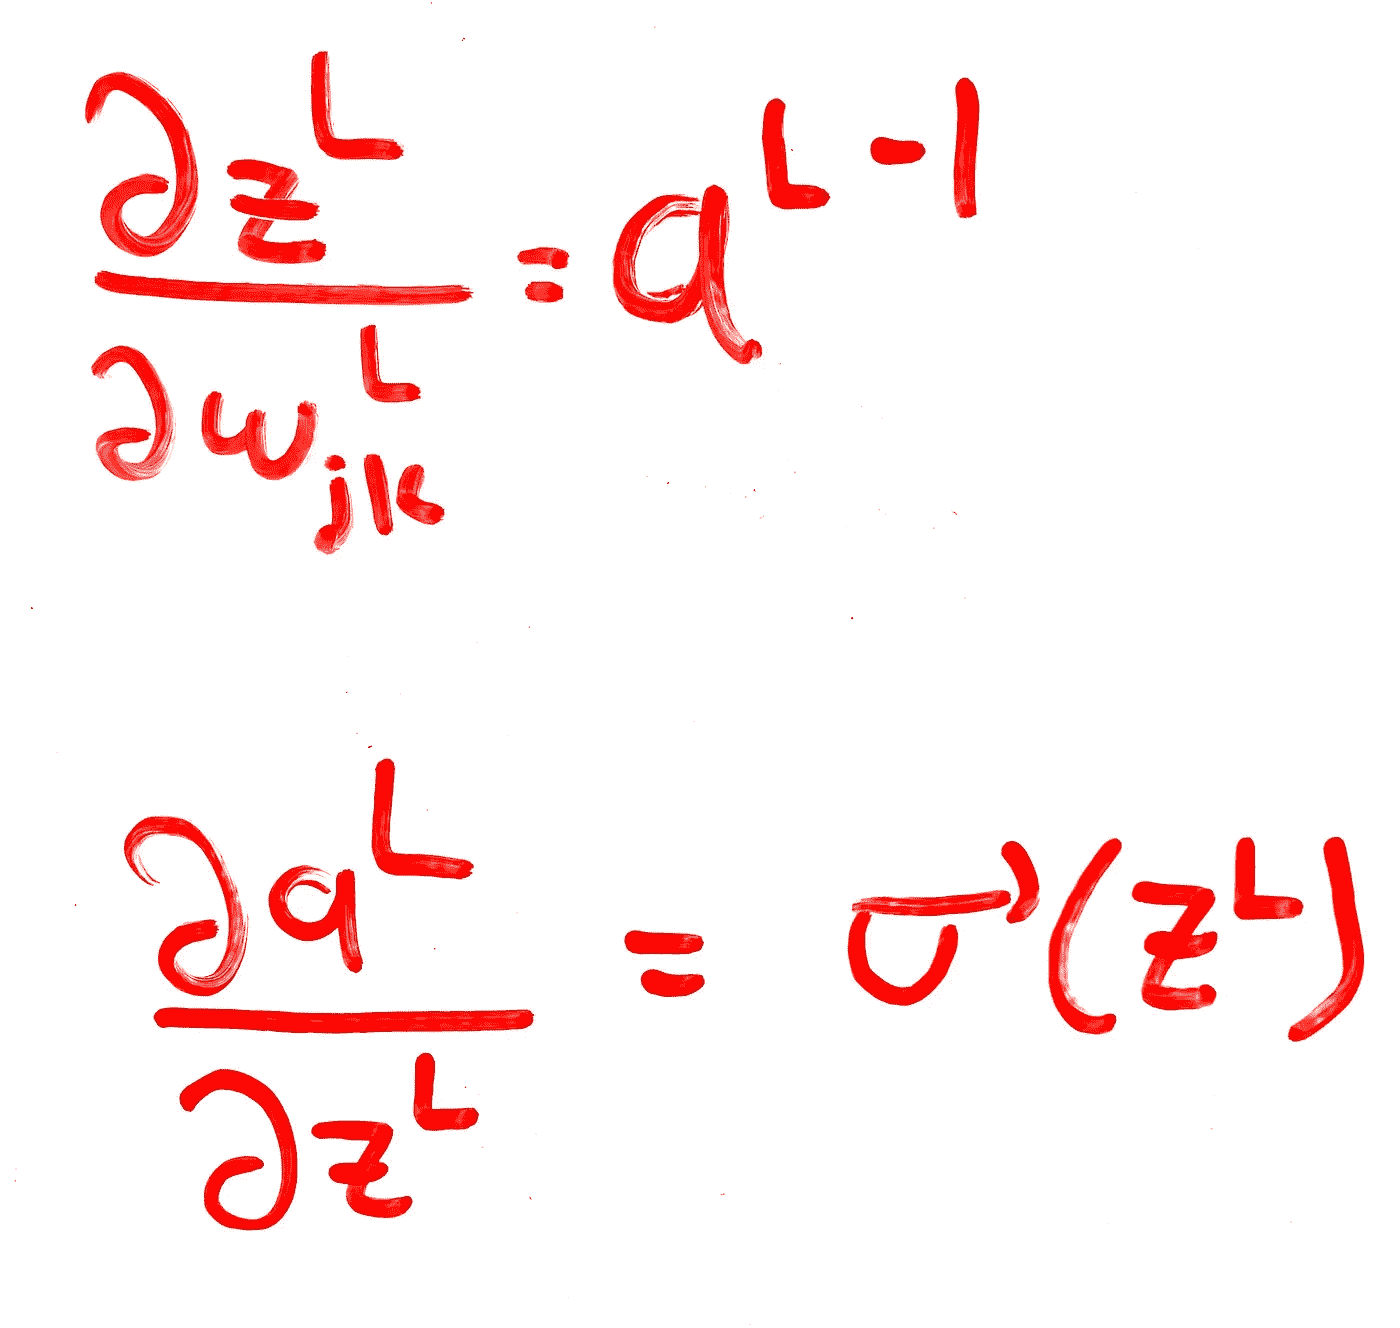 ∂z^L / ∂w_jk^L = a^L-1
∂a^L / ∂z^L = σ'(z^L)